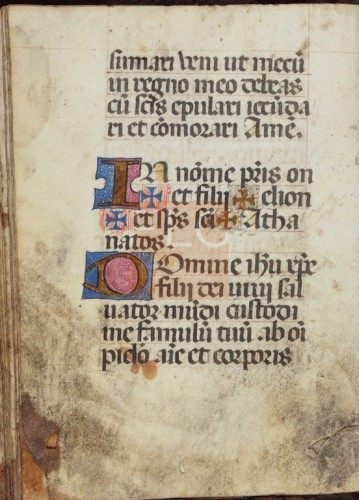 sumari veni ut mecū
in regno meo debeas
cū sc̄is epulari iocūda
ri et cōmorari Amē.
IN nōīe pr̄is on
✠ et filij ✠ elion
✠ et sp̄s sc̄i ✠ Atha
natos.
Domine ih̄u xp̄e
filij dei uiui sal
uator mūdi custodi
me famulū tuū ab oī
pīclō aīe et corporis